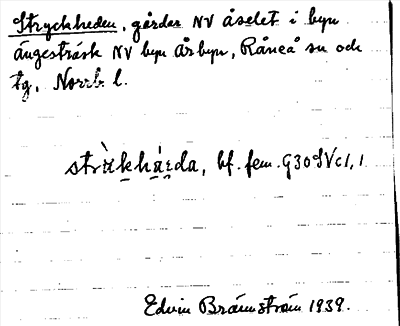 Stryckheden, gårdar NV åselet i byn
ängesträsk NV byn Årbyn, Råneå sn och
tg, Norrb. l.
sträkhärda, bf. fem. G30SVc1,1
Edvin Brännström 1939.